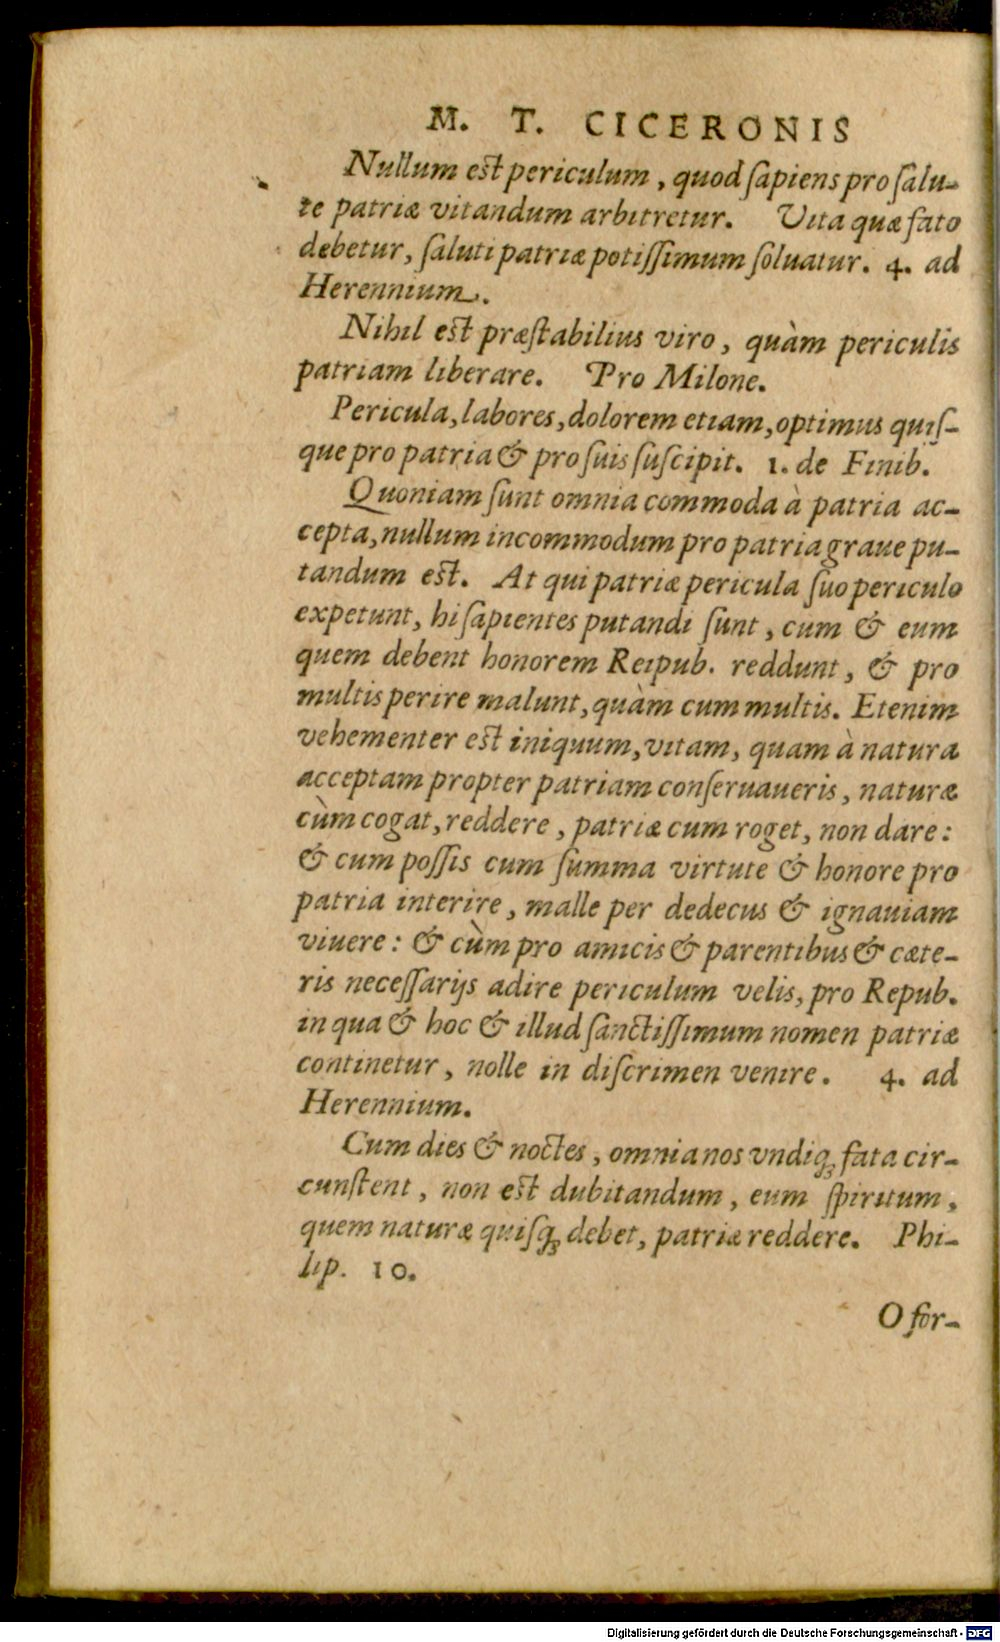 M. T. CICERONIS
Nullum est periculum, quod ſapiens pro ſalu-
te patriæ vitandum arbitretur. Vita quæ fato
debetur, ſaluti patriæ potiſſimum ſoluatur. 4. ad
Herennium.
Nihil est præſtabilius viro, quàm periculis
patriam liberare. Pro Milone.
Pericula, labores, dolorem etiam, optimus quiſ-
que pro patria & pro ſuis ſuſcipit. 1. de Finib.
Quoniam ſunt omnia commoda à patria ac-
cepta, nullum incommodum pro patria graue pu-
tandum est. At qui patriæ pericula ſuo periculo
expetunt, hi ſapientes putandi ſunt, cum & eum
quem debent honorem Reipub. reddunt, & pro
multis perire malunt, quàm cum multis. Etenim
vehementer est iniquum, vitam, quam à natura
acceptam propter patriam conſeruaueris, naturæ
cùm cogat, reddere, patriæ cum roget, non dare:
& cum poſſis cum ſumma virtute & honore pro
patria interire, malle per dedecus & ignauiam
viuere: & cùm pro amicis & parentibus & cæte-
ris neceſſarijs adire periculum velis, pro Repub.
in qua & hoc & illud ſanctiſſimum nomen patriæ
continetur, nolle in diſcrimen venire. 4. ad
Herennium.
Cum dies & noctes, omnia nos vndiq; fata cir-
cunſtent, non est dubitandum, eum ſpiritum,
quem naturæ quiſq; debet, patriæ reddere. Phi-
lip. 10.
O for-
Digitalisierung gefördert durch die Deutsche Forschungsgemeinschaft - DFG